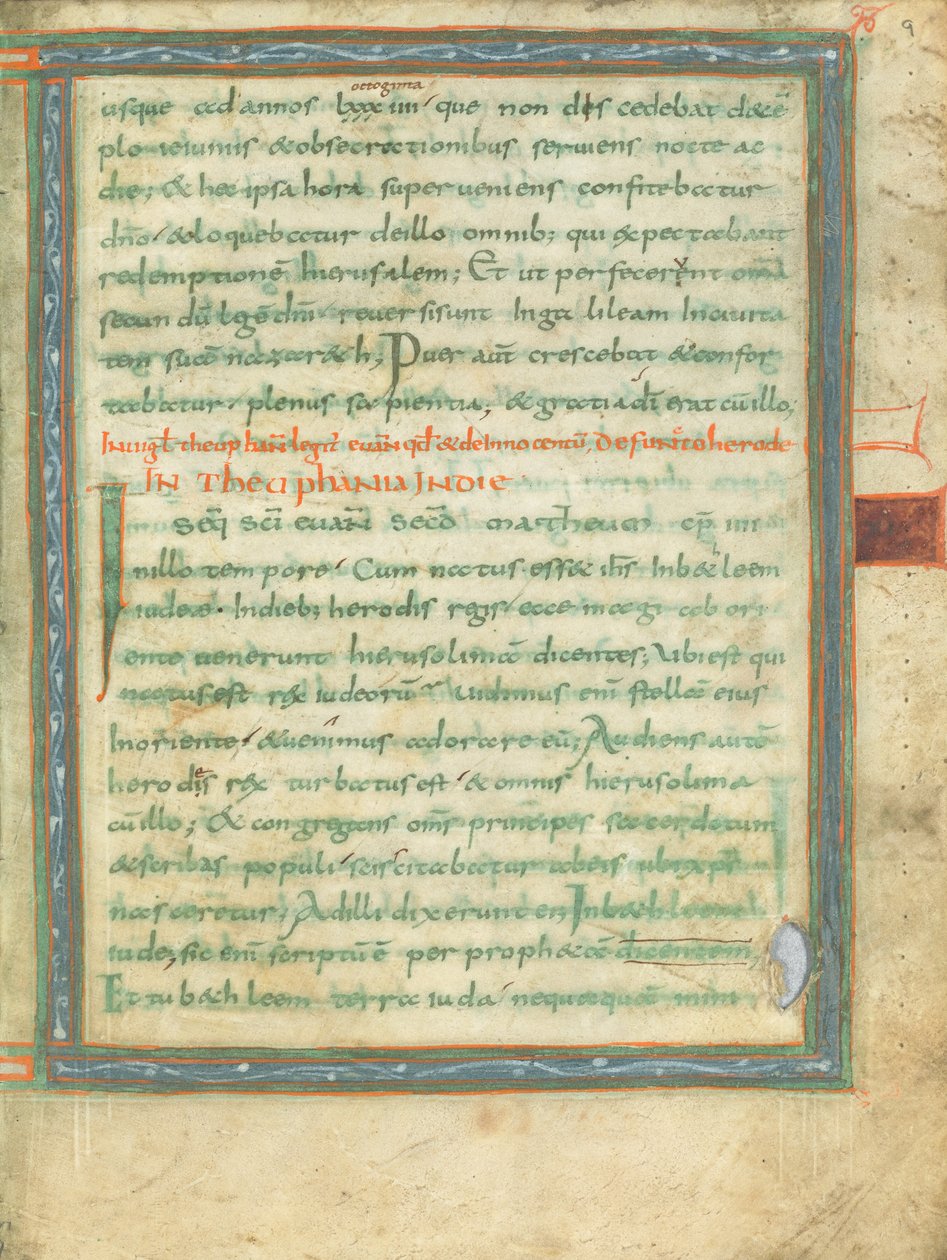 9
octoginta
usque ad annos lxxx iiii que non discedebat de tē
plo ieiuniis & obsecrationibus serviens nocte ac
die; & hec ipsa hora superveniens confitebatur
dn̄o & loquebatur de illo omnib; qui expectabant
redemptionē hierusalem; Et ut perfecerunt om̄a
secundū legē dn̄i reversi sunt In galileam In civita
tem suā nazareth; Puer aut̄ crescebat & confor
tabatur plenus sapientia; & gratia d̄i erat cū illo;
In vigl theuphan̄ legit evan̄ qd̄ & de Innocentū; Defuncto herode
IN TheuphaNIA INdie
Seq̄ sc̄i evan̄ sec̄d matheum cp̄ iiii
Inillo tempore Cum natus ess& ih̄s In b&hleem
iudeae. In dieb; herodis regis ecce magi ab ori
ente venerunt hierusolimā dicentes; Ubi est qui
natus est rex iudeorū vidimus eni᷄ stellā eius
In oriente, & venimus adorare eū; Audiens autē
herodes rex turbatus est & omnis hierusolima
cū illo; & congregans om̄s principes sacerdotum
& scribas populi sciscitabatur ab eis ubi xp̄s
nasceretur; Ad illi dixerunt ei; In b&hleem
iude; sic eni᷄ scriptū ē per proph&ā dicentem;
Et tu b&hleem terra iuda nequaquā mini